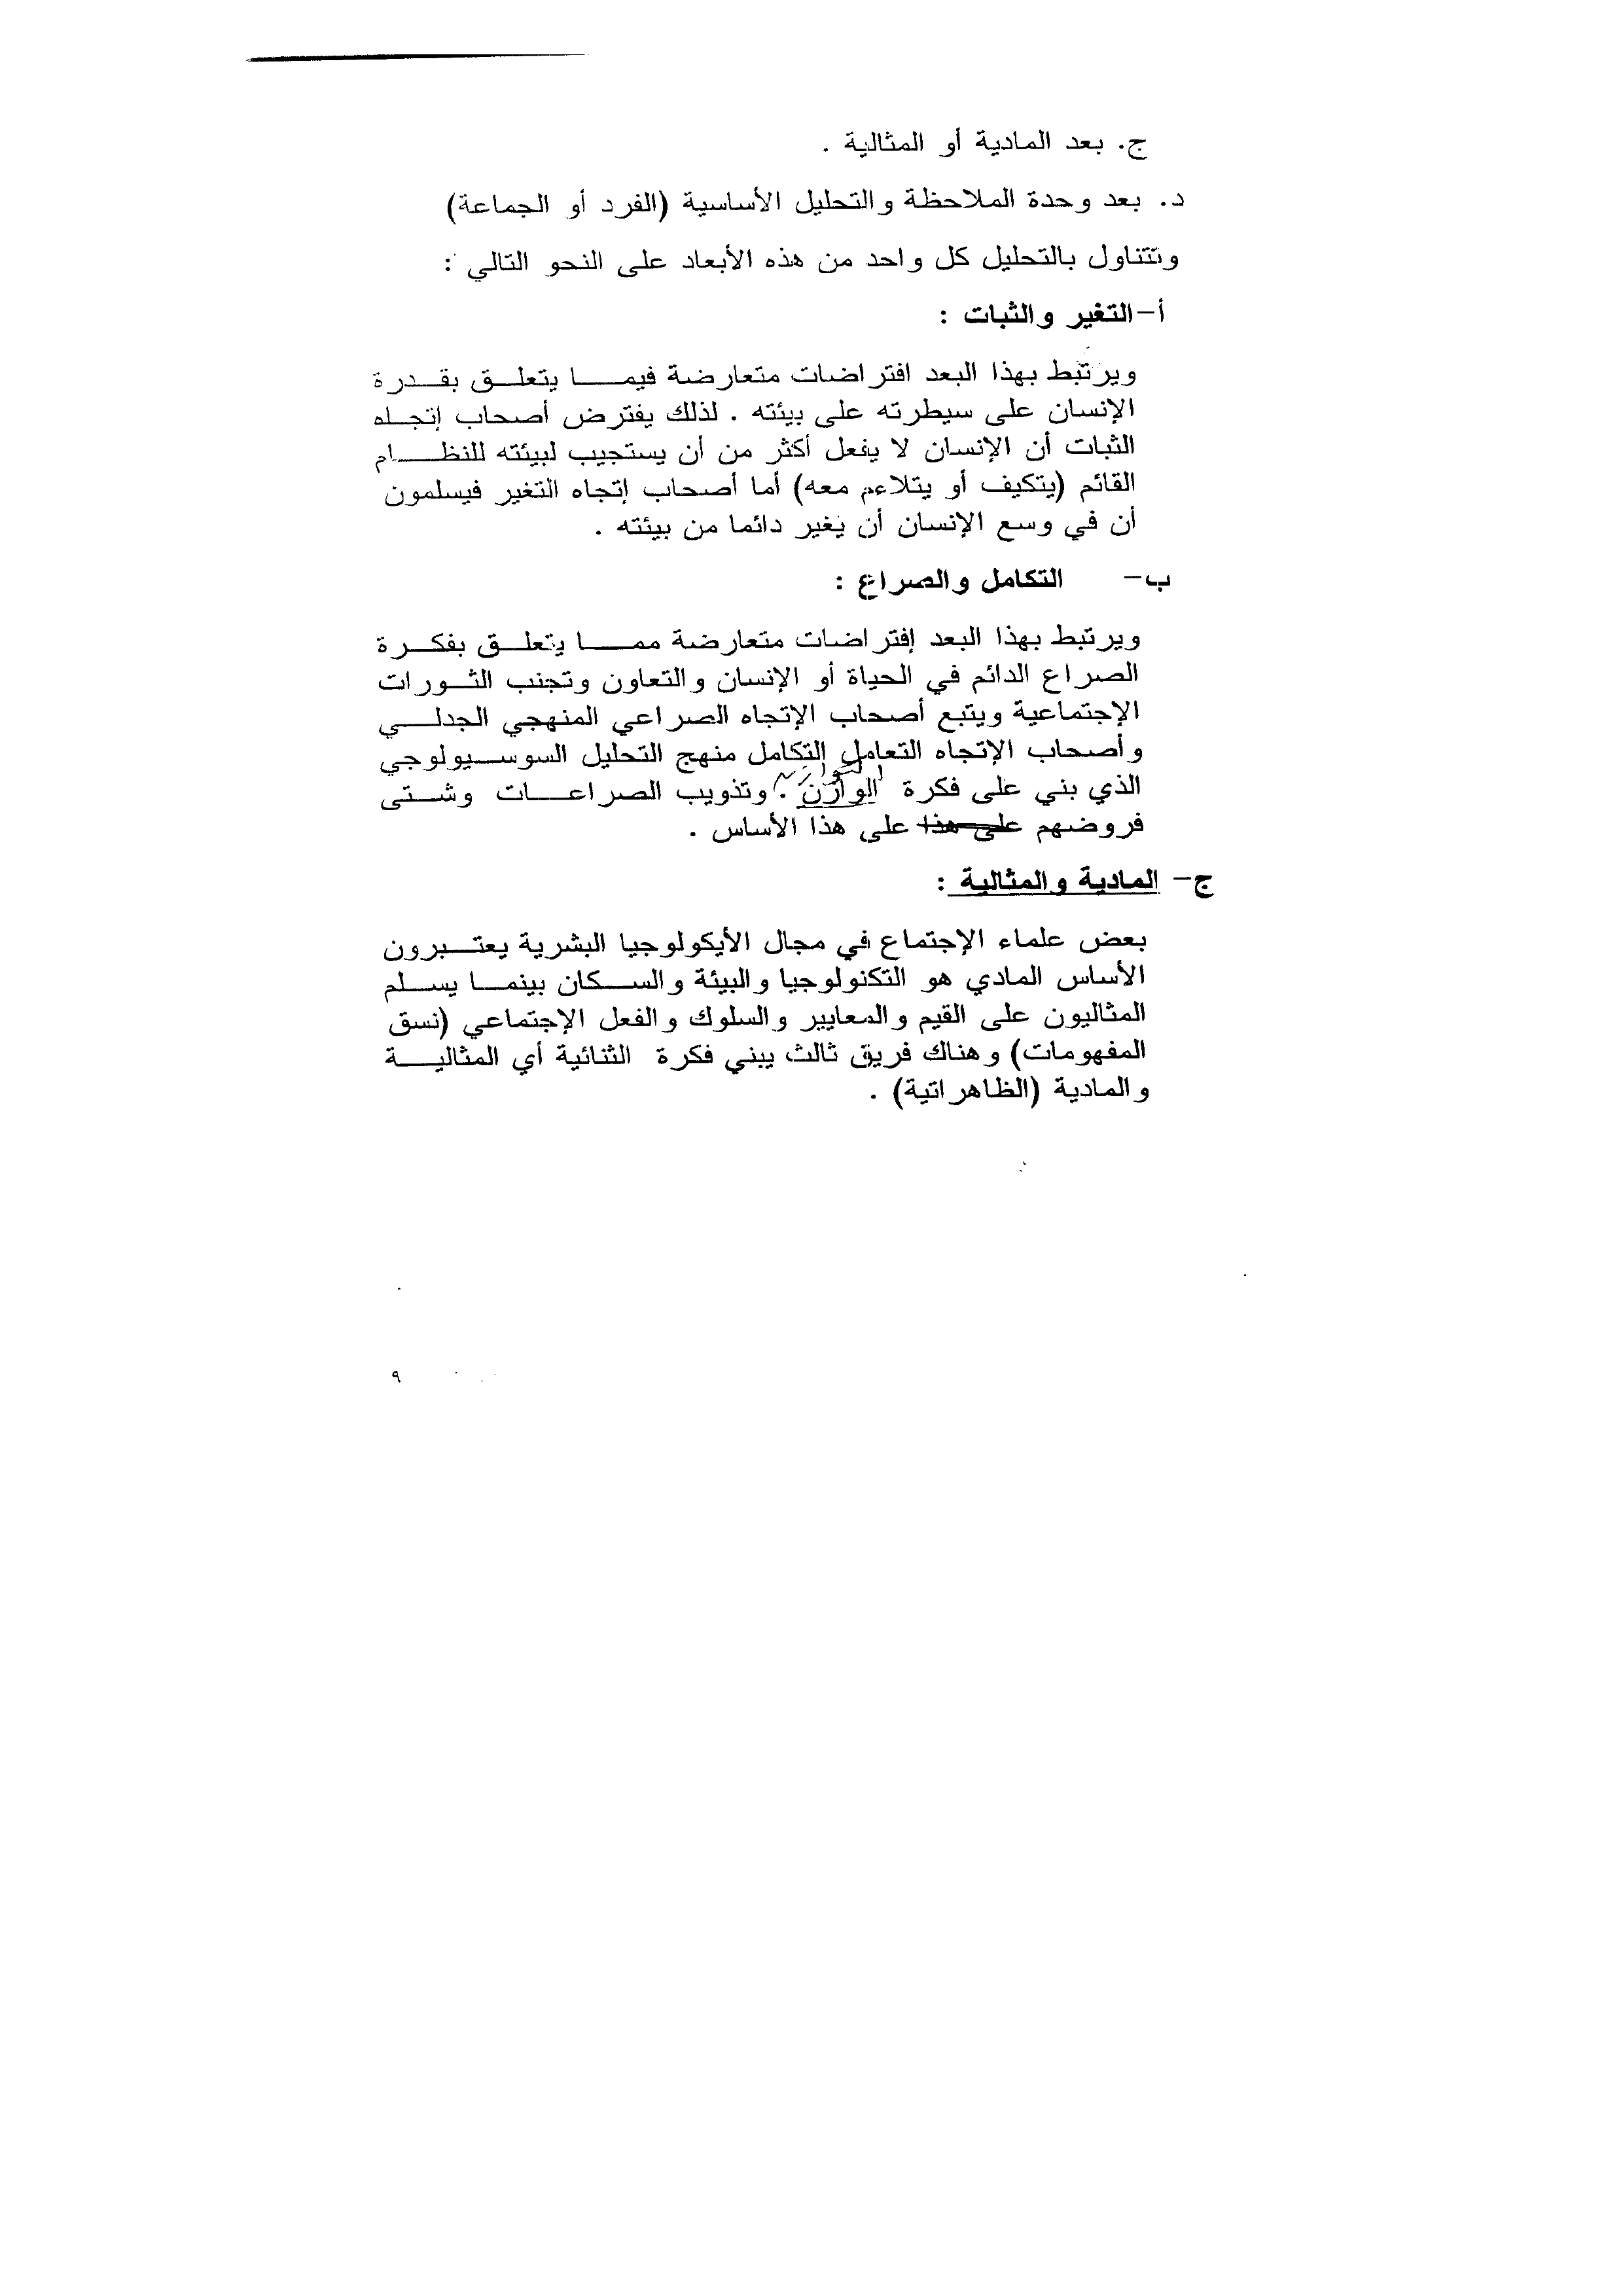 ج. بعد المادية أو المثالية .
د. بعد وحدة الملاحظة والتحليل الأساسية (الفرد أو الجماعة)
ونتناول بالتحليل كل واحد من هذه الأبعاد على النحو التالي :
أ-التغير والثبات :
ويرتبط بهذا البعد افتراضات متعارضة فيما يتعلق بقدرة
الإنسان على سيطرته على بيئته . لذلك يفترض أصحاب إتجاه
الثبات أن الإنسان لا يفعل أكثر من أن يستجيب لبيئته للنظام
القائم (يتكيف أو يتلاءم معه) أما أصحاب إتجاه التغير فيسلمون
أن في وسع الإنسان أن يغير دائما من بيئته .
ب- التكامل والصراع :
ويرتبط بهذا البعد إفتراضات متعارضة مما يتعلق بفكرة
الصراع الدائم في الحياة أو الإنسان والتعاون وتجنب الثورات
الإجتماعية ويتبع أصحاب الإتجاه الصراعي المنهجي الجدلي
وأصحاب الإتجاه التعامل التكامل منهج التحليل السوسيولوجي
الذي بني على فكرة الوازن . وتذويب الصراعات وشتى
فروضهم على هذا على هذا الأساس .
ج- المادية والمثالية :
بعض علماء الإجتماع في مجال الأيكولوجيا البشرية يعتبرون
الأساس المادي هو التكنولوجيا والبيئة والسكان بينما يسلم
المثاليون على القيم والمعايير والسلوك والفعل الإجتماعي (نسق
المفهومات) وهناك فريق ثالث يبني فكرة الثنائية أي المثالية
والمادية (الظاهراتية) .
٩